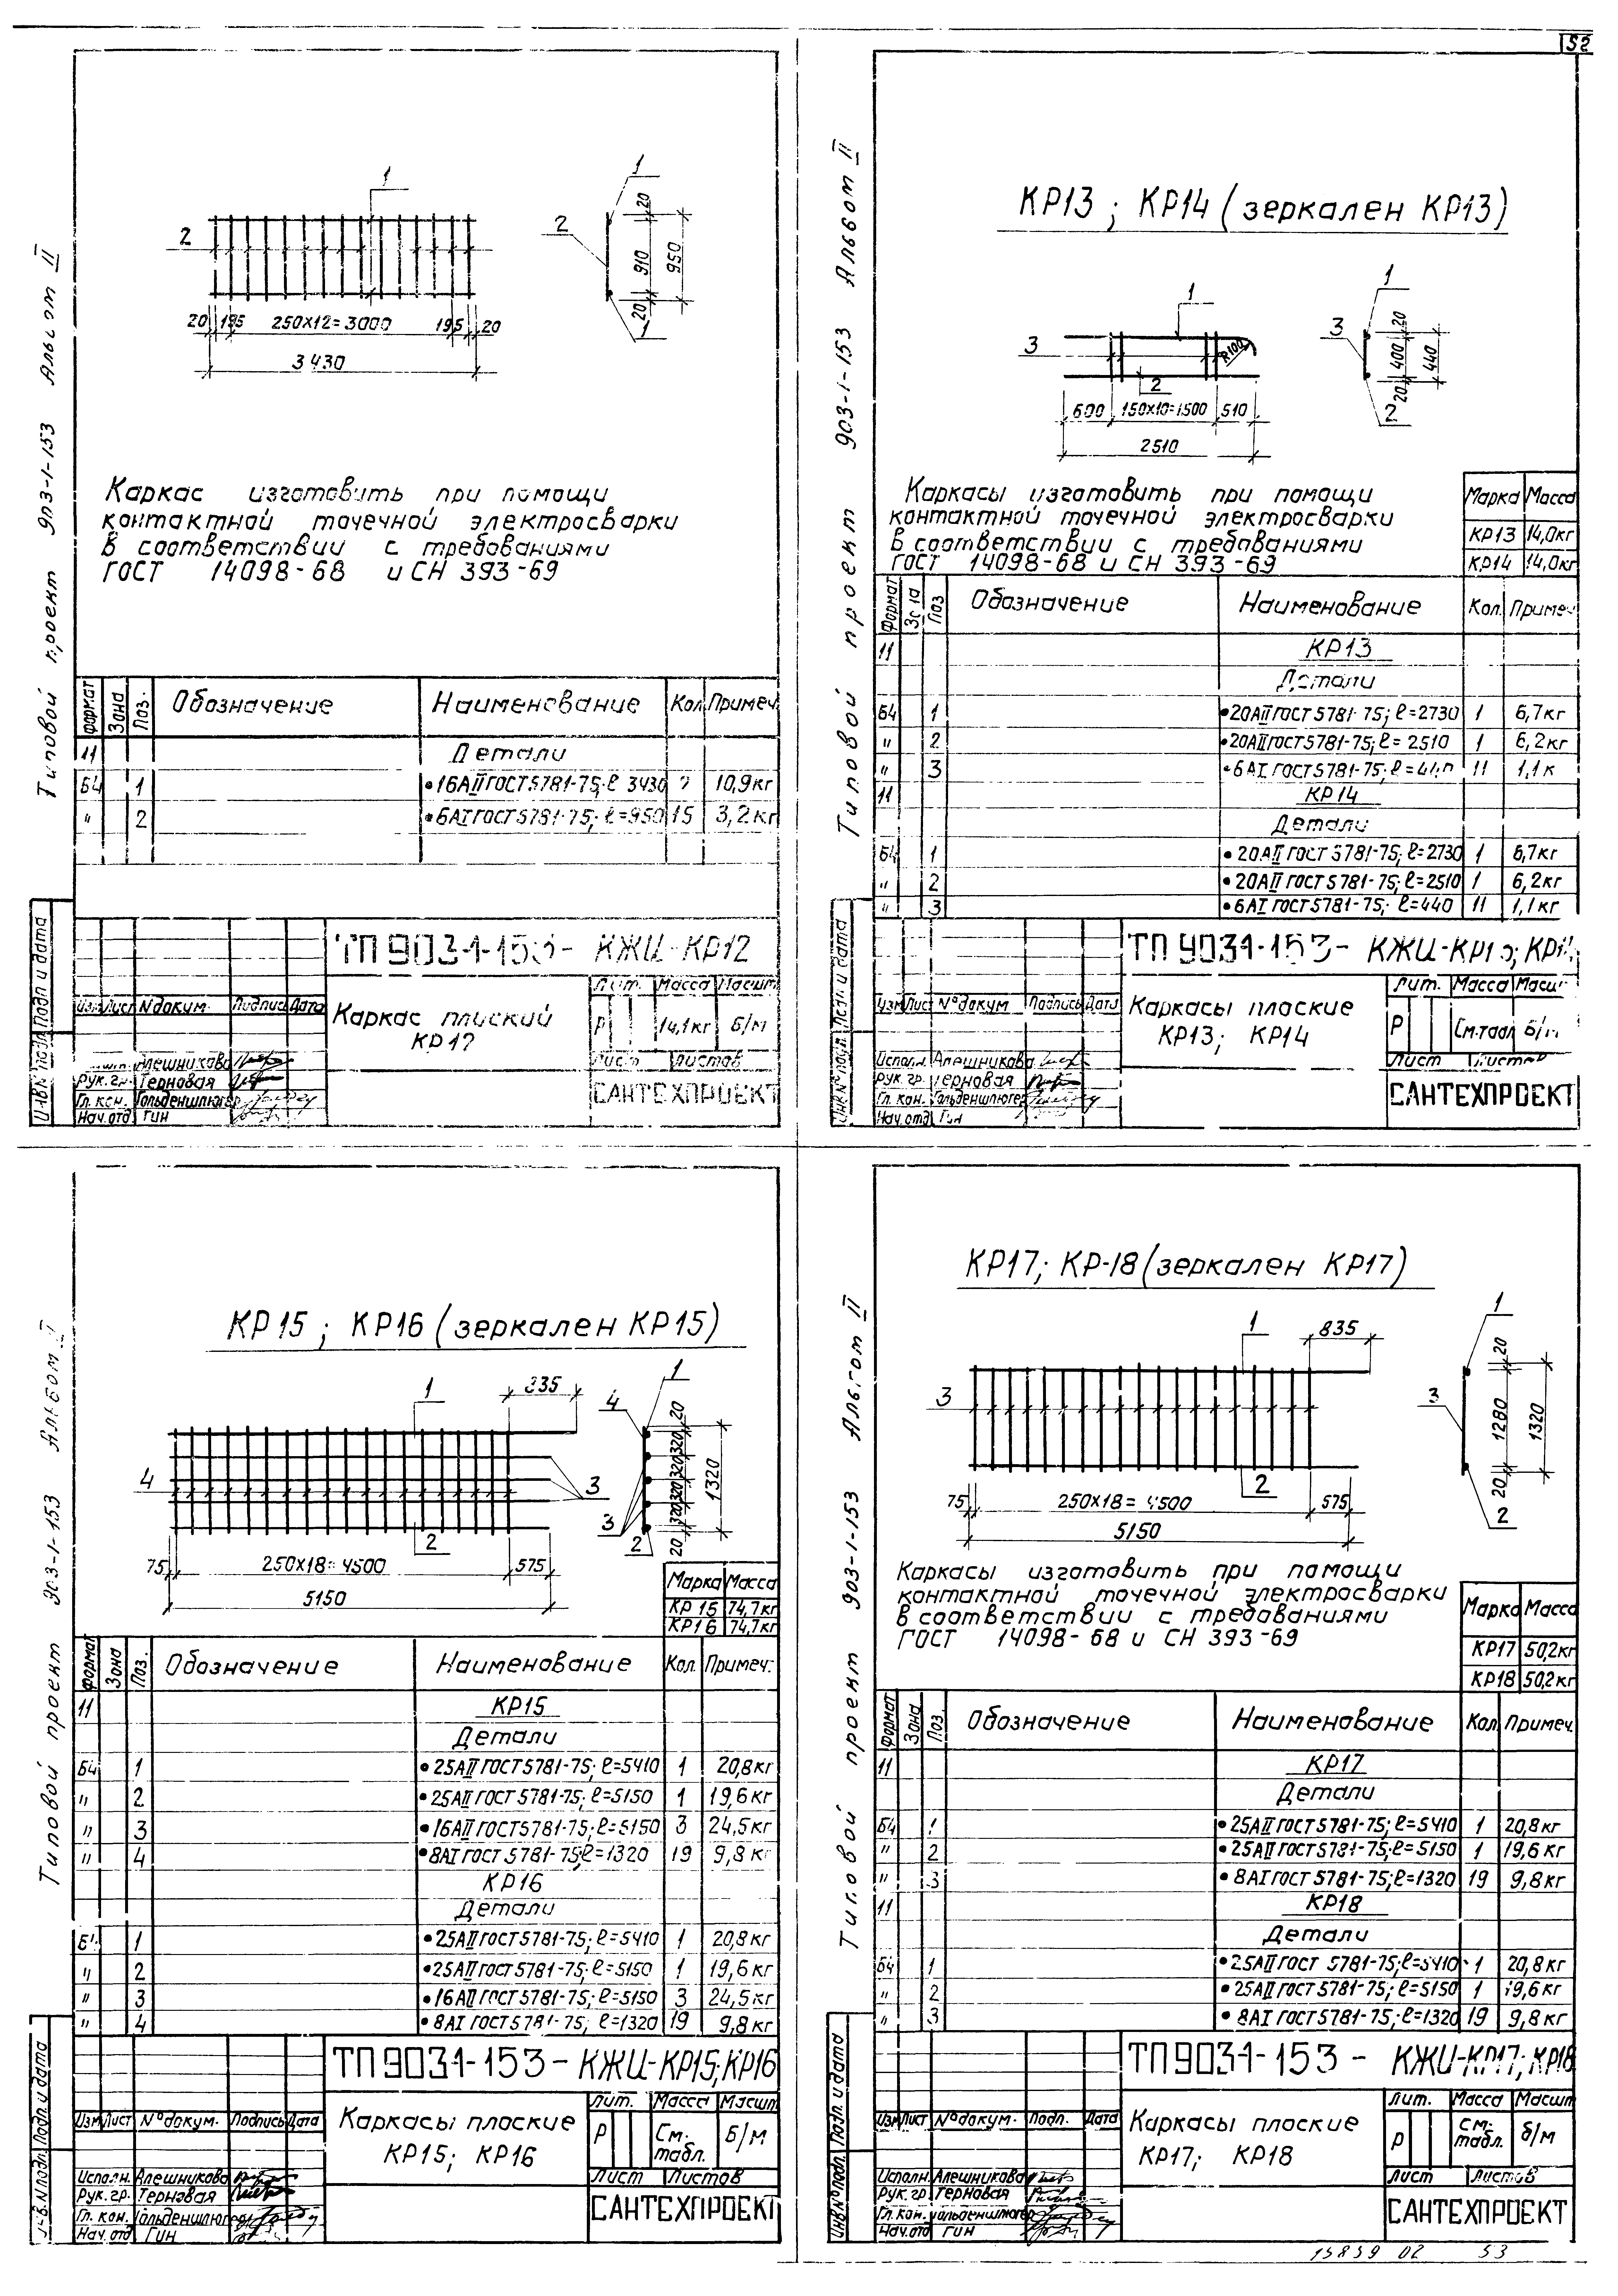 52
Типовой проект 903-1-153 Альбом II
1
2
20 195 250х12=3000 195 20
3430
1
2
1
20 910 20
950
Каркас изготовить при помощи
контактной точечной электросварки
в соответствии с требованиями
ГОСТ 14098-68 и СН 393-69
Формат Зона Поз. Обозначение Наименование Кол Примеч
11 Детали
Б4 1 •16АII ГОСТ 5781-75; ℓ 3430 10,9кг
" 2 •6АI ГОСТ 5781-75; ℓ=950 15 3,2кг
ТП 903-1-153- КЖИ-КР12
Изм Лист № докум. Подпись Дата
Каркас плоский
КР12
Лит. Масса Масшт
Р 14,1кг Б/М
Лист Листов
Алешникова
Рук. гр. Терновая
Гл. кон. Гольденшлюгер
Нач. отд Гин
САНТЕХПРОЕКТ
Инв № подл Подп и дата
Типовой проект 903-1-153 Альбом II
КР13; КР14 (зеркален КР13)
1
3
R100
2
600 150х10=1500 510
2510
1
3
2
20 400 20
440
Каркасы изготовить при помощи
контактной точечной электросварки
в соответствии с требованиями
ГОСТ 14098-68 и СН 393-69
Марка Масса
КР13 14,0кг
КР14 14,0кг
Формат Зона Поз Обозначение Наименование Кол. Примеч
11 КР13
Детали
Б4 1 •20АII ГОСТ 5781-75; ℓ=2730 1 6,7кг
" 2 •20АII ГОСТ 5781-75; ℓ=2510 1 6,2кг
" 3 •6АI ГОСТ 5781-75; 11 1,1к
11 КР14
Детали
Б4 1 •20АII ГОСТ 5781-75; ℓ=2730 1 6,7кг
" 2 •20АII ГОСТ 5781-75; ℓ=2510 1 6,2кг
" 3 •6АI ГОСТ 5781-75; ℓ=440 11 1,1кг
ТП 903-1-153- КЖИ-КР13; КР14
Изм Лист № докум Подпись Дата
Каркасы плоские
КР13; КР14
Лит. Масса Масшт
Р См.табл Б/М
Лист Листов
Исполн. Алешникова
Рук. гр. Терновая
Гл. кон. Гольденшлюгер
Нач. отд Гин
САНТЕХПРОЕКТ
Инв № подл. Подп. и дата
Типовой проект 903-1-153 Альбом II
КР15; КР16 (зеркален КР15)
1 835
4
3
2
75 250х18=4500 575
5150
1
4
3
2
20 320 320 320 320 20
1320
Марка Масса
КР15 74,7кг
КР16 74,7кг
Формат Зона Поз. Обозначение Наименование Кол. Примеч.
11 КР15
Детали
Б4 1 •25АII ГОСТ 5781-75; ℓ=5410 1 20,8кг
" 2 •25АII ГОСТ 5781-75; ℓ=5150 1 19,6кг
" 3 •16АII ГОСТ 5781-75; ℓ=5150 3 24,5кг
" 4 •8АI ГОСТ 5781-75; ℓ=1320 19 9,8кг
КР16
Детали
Б4 1 •25АII ГОСТ 5781-75; ℓ=5410 1 20,8кг
" 2 •25АII ГОСТ 5781-75; ℓ=5150 1 19,6кг
" 3 •16АII ГОСТ 5781-75; ℓ=5150 3 24,5кг
" 4 •8АI ГОСТ 5781-75; ℓ=1320 19 9,8кг
ТП 903-1-153- КЖИ-КР15; КР16
Изм Лист № докум. Подпись Дата
Каркасы плоские
КР15; КР16
Лит. Масса Масшт
Р См. табл. Б/М
Лист Листов
Исполн. Алешникова
Рук. гр. Терновая
Гл. кон. Гольденшлюгер
Нач. отд Гин
САНТЕХПРОЕКТ
Инв. № подл. Подп. и дата
Типовой проект 903-1-153 Альбом II
КР17; КР-18 (зеркален КР17)
1 835
3
2
75 250х18=4500 575
5150
1
3
2
20 1280 20
1320
Каркасы изготовить при помощи
контактной точечной электросварки
в соответствии с требованиями
ГОСТ 14098-68 и СН 393-69
Марка Масса
КР17 50,2кг
КР18 50,2кг
Формат Зона Поз. Обозначение Наименование Кол Примеч.
11 КР17
Детали
Б4 1 •25АII ГОСТ 5781-75; ℓ=5410 1 20,8кг
" 2 •25АII ГОСТ 5781-75; ℓ=5150 1 19,6кг
" 3 •8АI ГОСТ 5781-75; ℓ=1320 19 9,8кг
11 КР18
Детали
Б4 1 •25АII ГОСТ 5781-75; ℓ=5410 1 20,8кг
" 2 •25АII ГОСТ 5781-75; ℓ=5150 1 19,6кг
" 3 •8АI ГОСТ 5781-75; ℓ=1320 19 9,8кг
ТП 903-1-153 - КЖИ-КР17; КР18
Изм Лист № докум. Подп. Дата
Каркасы плоские
КР17; КР18
Лит. Масса Масшт
Р См. табл. Б/М
Лист Листов
Исполн. Алешникова
Рук. гр. Терновая
Гл. кон. Гольденшлюгер
Нач. отд Гин
САНТЕХПРОЕКТ
Инв № подл. Подп. и дата
15859 02 53